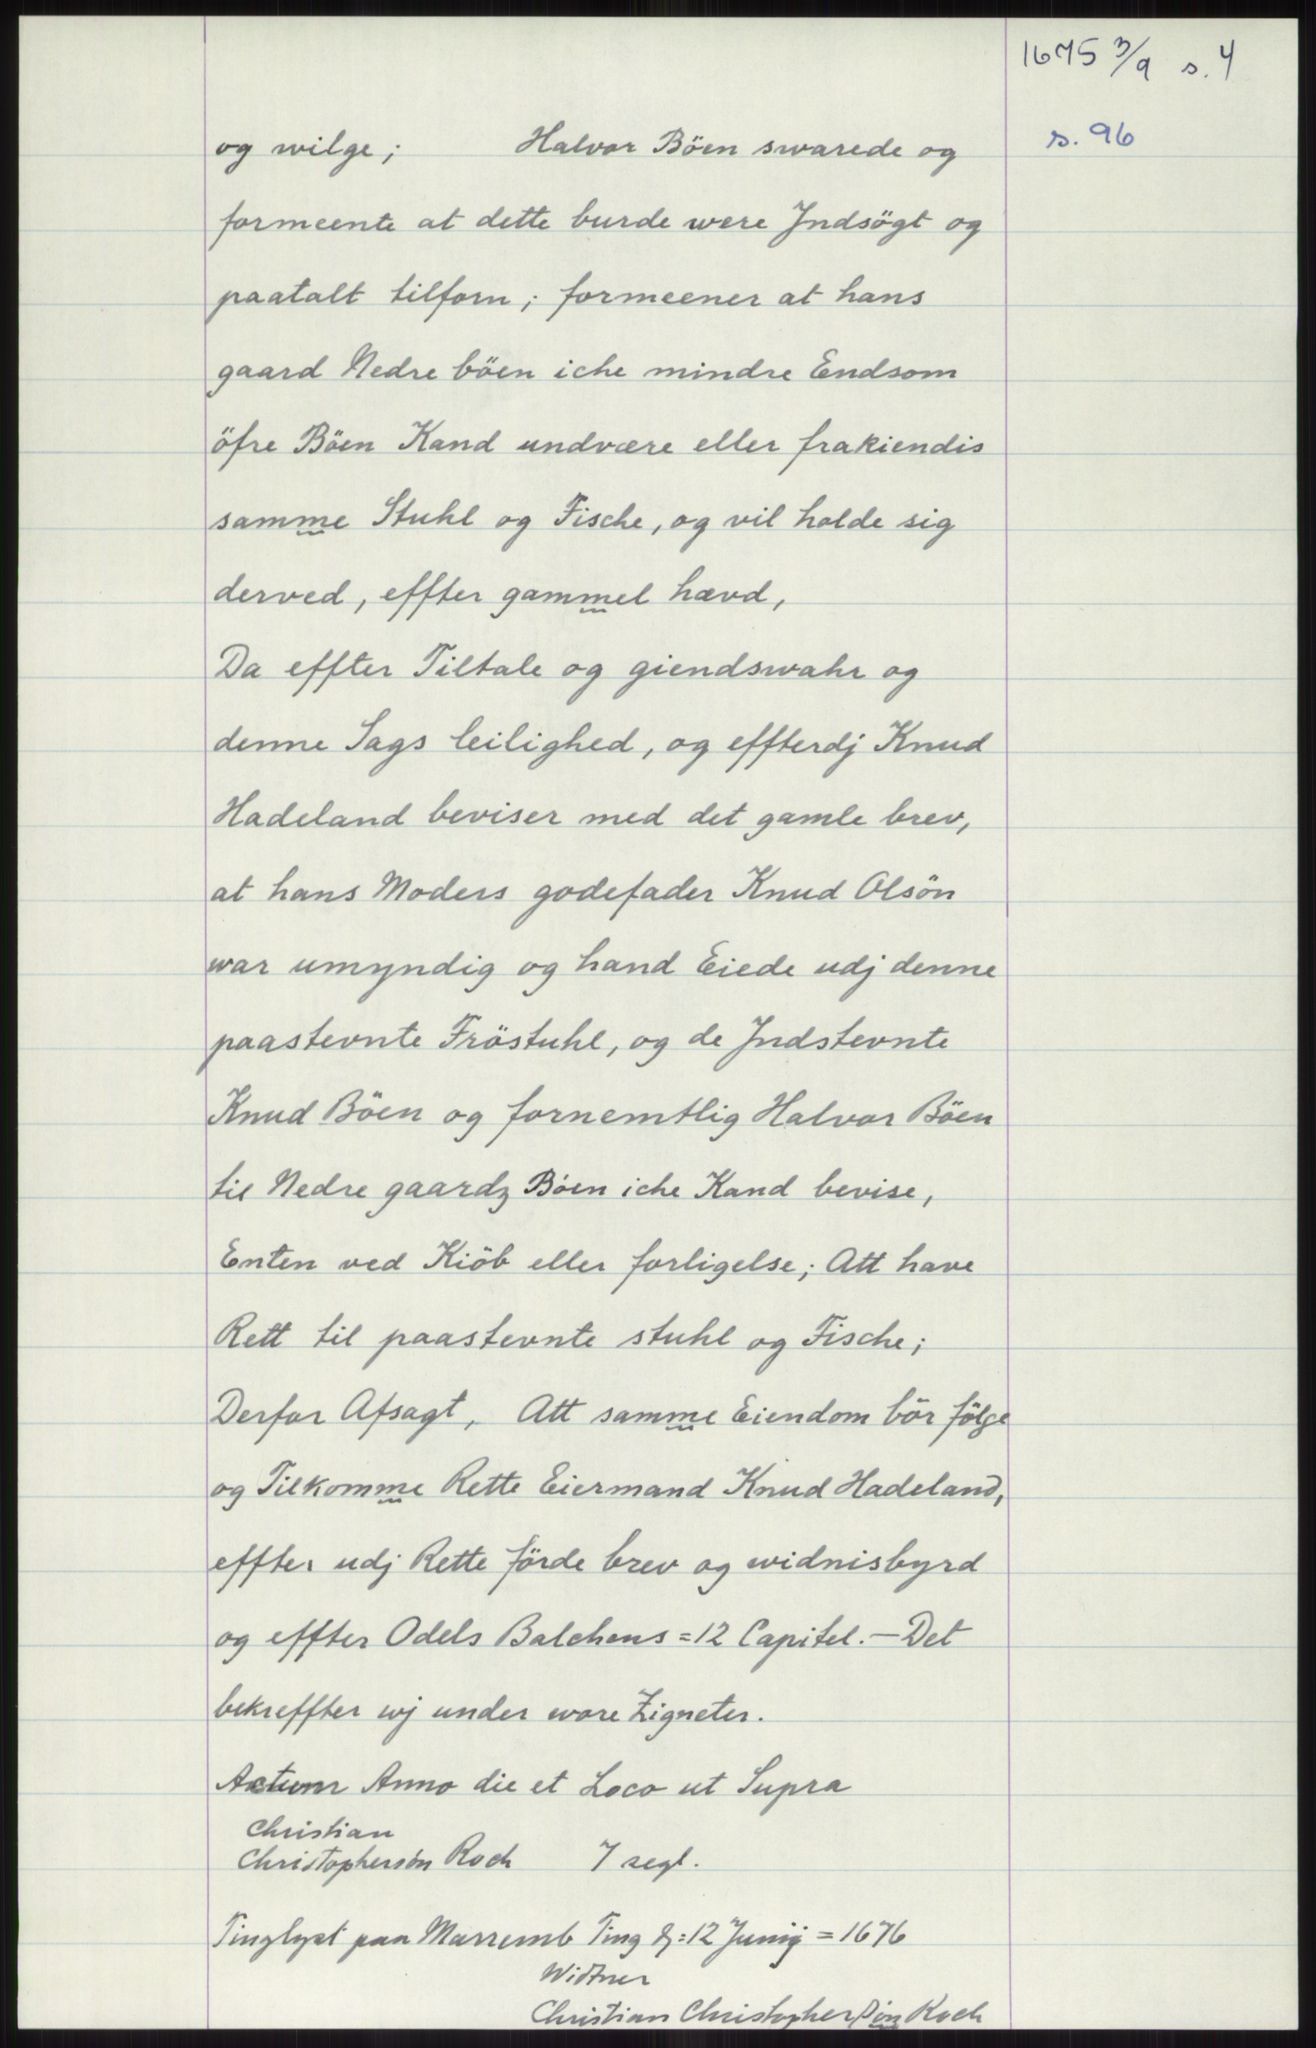 1675 3/9 s. 4
s. 96
og wilge; Halvor Böen swarede og
formeente at dette burde were Jndsögt og
paatalt tilforn; formeener at hans
gaard Nedre böen iche mindre Endsom
öfre Böen Kand undvære eller frakiendis
samme Stuhl og Fische, og vil holde sig
derved, effter gammel hævd,
Da effter Tiltale og giendswahr og
denne Sags leilighed, og effterdj Knud
Hadeland beviser med det gamle brev,
at hans Moders godefader Knud Olsön
war umyndig og hand Eiede udj denne
paastevnte Fröstuhl, og de Jndstevnte
Knud Böen og fornemtlig Halvor Böen
til Nedre gaardz Böen iche Kand bevise,
Enten ved Kiöb eller forligelse; Att have
Rett til paastevnte stuhl og Fische;
Derfor Afsagt, Att samme Eiendom bör fölge
og Tilkomme Rette Eiermand Knud Hadeland,
effter udj Rette förde brev og widnisbyrd
og effter Odels Balchens =12 Capitel. — Det
bekreffter wj under wore Zigneter.
Actum Anno die et Loco ut Supra
Christian
Christophersön Roch 7 segl.
Tinglyst paa Marremb Ting d: 12 Junij = 1676
Widner
Christian Christopherßön Roch